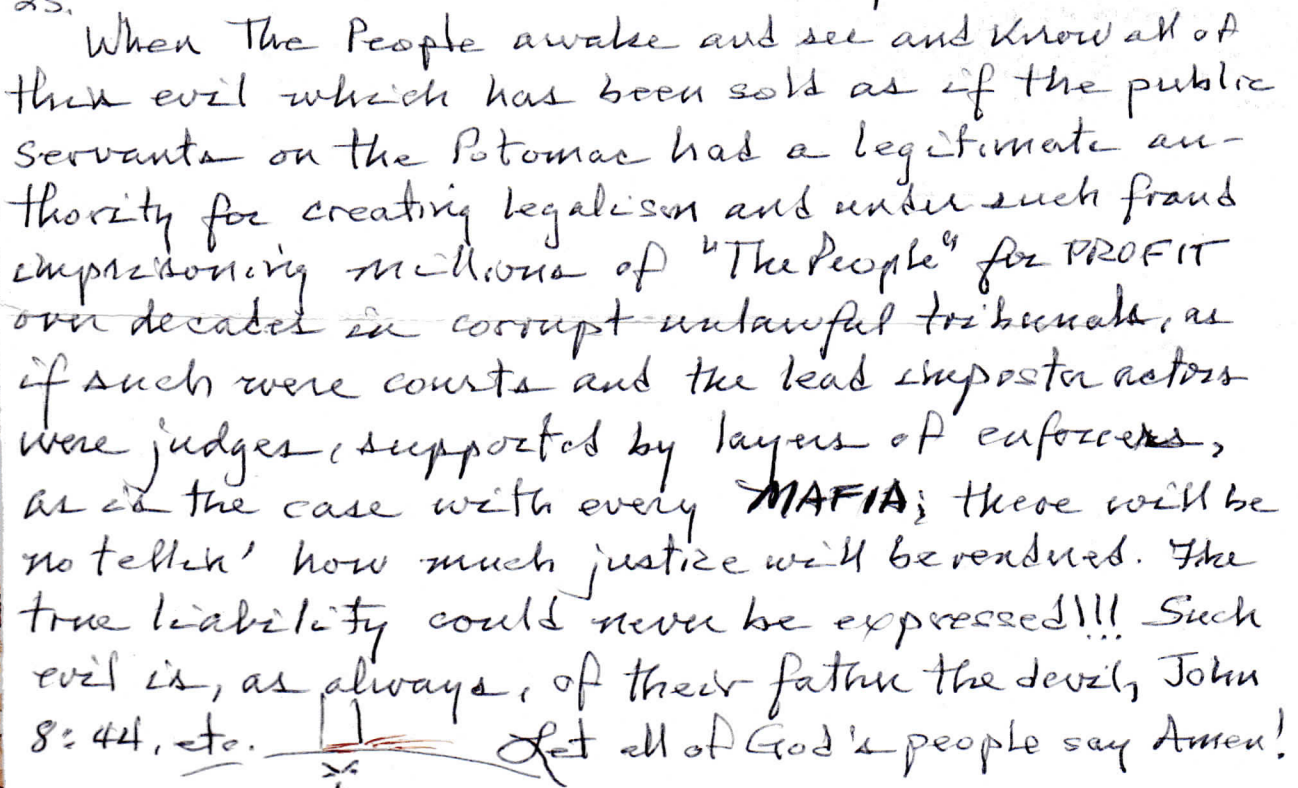 23.
When The People awake and see and Know all of
this evil which has been sold as if the public
servants on the Potomac had a legitimate au-
thority for creating legalism and under such fraud
imprisoning millions of "The People" for PROFIT
over decades in corrupt unlawful tribunals, as
if such were courts and the lead imposter actors
were judges, supported by layers of enforcers,
as is the case with every MAFIA; there will be
no tellin' how much justice will be rendered. The
true liability could never be expressed!!! Such
evil is, as always, of their father the devil, John
8:44, etc. Let all of God's people say Amen!